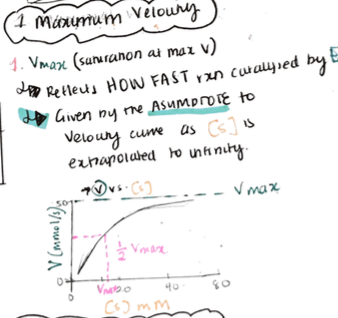 1 Maximum Velocity
1. Vmax (saturation at max V)
Reflects HOW FAST rxn catalysed by E
Given by the ASYMPTOTE to
Velocity curve as [S] is
extrapolated to infinity.
→ V vs. [S]
Vmax
50
V (mmol/s)
1/2 Vmax
0
0
20
40
80
[S] mM